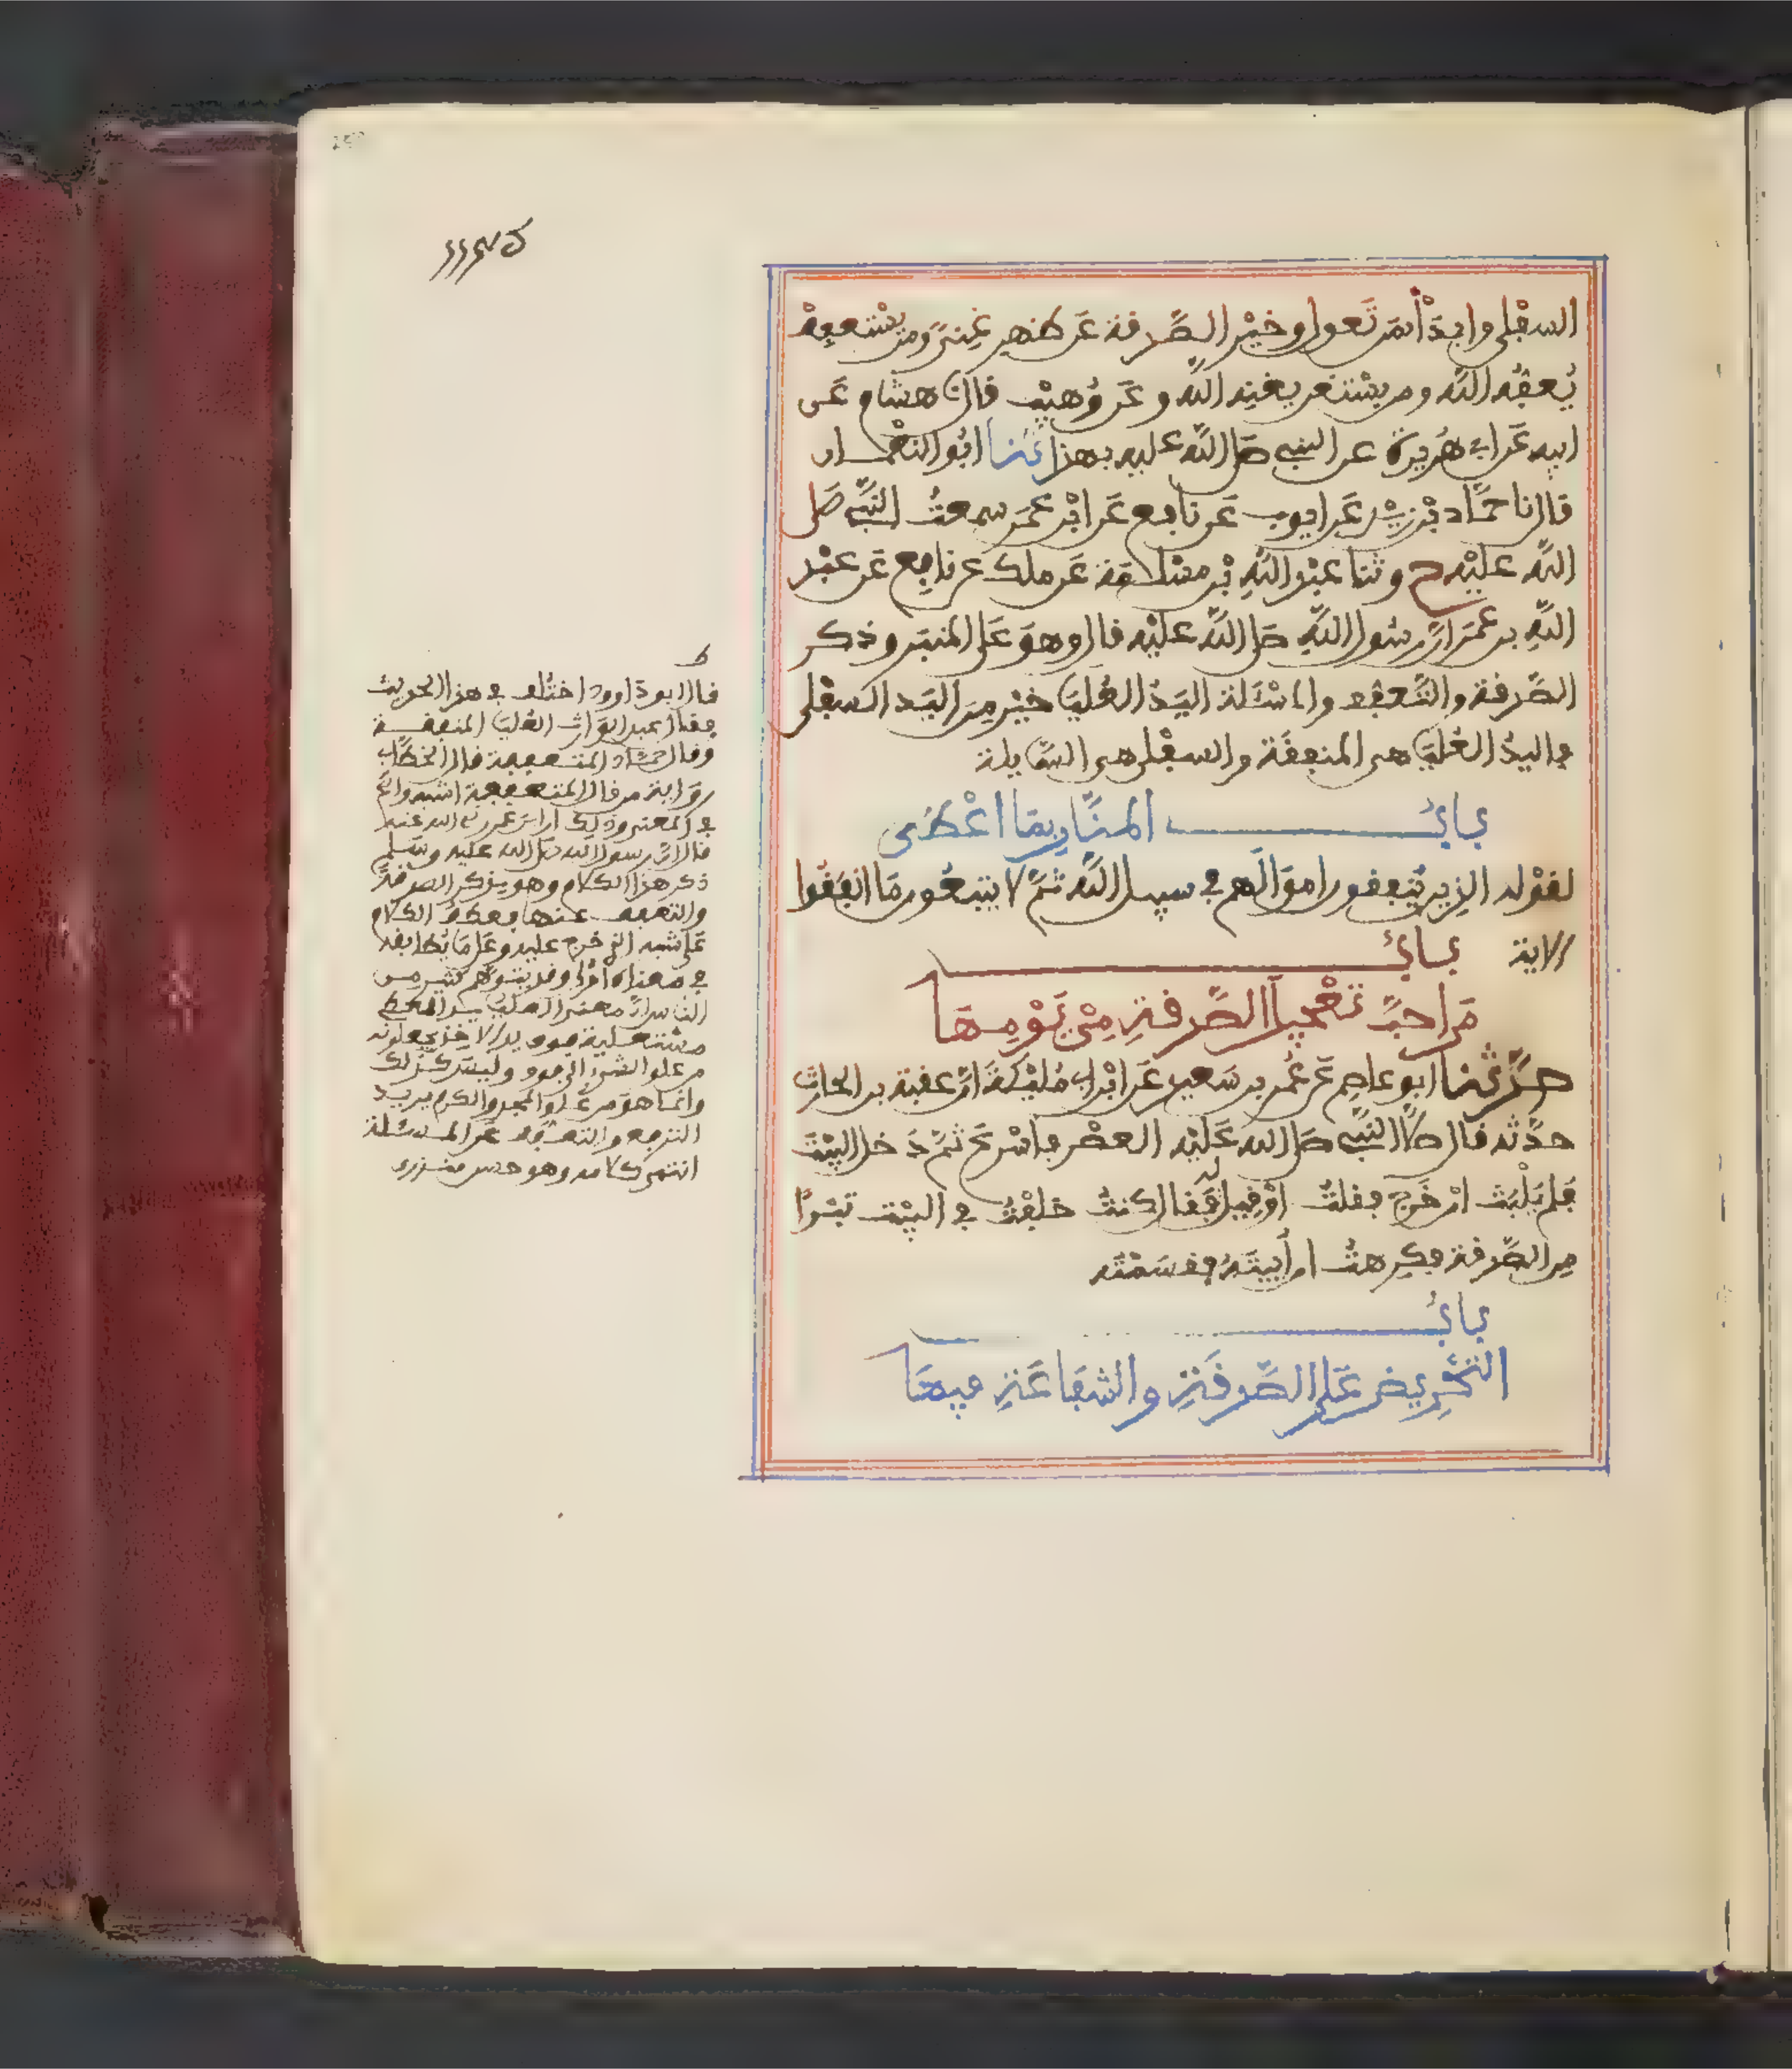 السفلى وابدأ بمن تعول وخير الصدقة عن ظهر غنى ومن يستعفف
يُعفّه الله ومن يستغن يغنه الله وعن وُهيب قال نا هشام عن
ابيه عن ابي هُريرة عن النبي صلى الله عليه بهذا ثنا ابو النعمان
قال نا حمّاد بن زيد عن ايوب عن نافع عن ابن عمر سمعتُ النبي صلى
الله عليه ح وثنا عبد الله بن مسلمة عن ملك عن نافع عن عبد
الله بن عمر ان رسول الله صلى الله عليه قال وهو على المنبر وذكر
الصّدقة والتّعفّف والمسْئلة اليدُ العُليا خيْر من اليد السفلى
فاليدُ العُليا هي المنفِقة والسفلى هي السّايلة
بابُ المنّان بما اعْطى
لقوْله الذين يُنفقون اموالهم في سبيل الله ثمّ لا يتبعُون ما انفقُوا
الاية بابُ
من احبّ تعْجيل الصّدقة مِنْ يَوْمِها
حدّثنا ابو عاصم عن عُمر بن سَعيد عن ابن ابي مُليْكة انّ عقبة بن الحارث
حدّثه قال صلّى النبي صلى الله عليْه العصْر فاسْرع ثمّ دخل البيْت
فلم يلْبث انْ خرج فقلتُ اوْ قيل له فقال كنتُ خلفْتُ في البيْت تبْرًا
من الصّدقة فكرهتُ ان أُبيّتهُ فقسمْته
بابُ
التحْريض على الصّدقة والشفاعة فيها
ط
قال ابو داوود اختُلف في هذا الحديث
فقال عبد الوارث العُليا المتعففة
وقال حمّاد المتعففة قال الخطّابي
رواية من قال المتعففة اشبه واصح
في المعنى وذلك ان ابن عمر رضي الله عنه
قال ان رسول الله صلى الله عليه وسلم
ذكر هذا الكلام وهو يذكر الصدقة
والتعفف عنها فعطفُ الكلام
على سببه الذي خرج عليه وعلى ما يُطابقه
في معناه اولى وقد يتوهم كثير من
الناس ان معنى العليا يد المعطي
مستعلية فوق يد الاخذ يجعلونه
من علو الشيء الى فوق وليس كذلك
وانما هو من عُلو المجد والكرم يريد
الترفع والتعفف عن المسئلة
انتهى كلامه وهو حسن